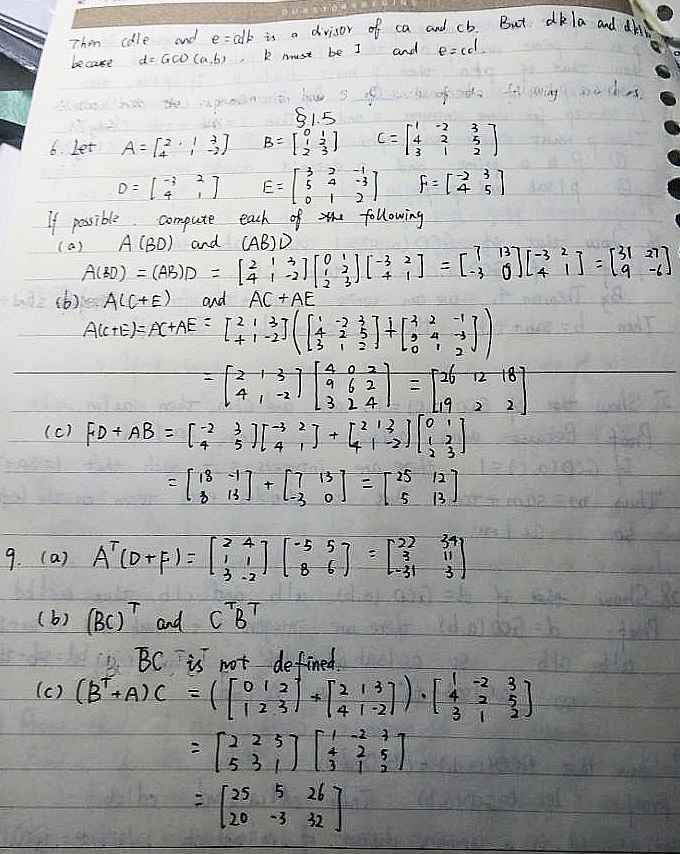 OURSTORYBEGINS
Then cd|e and e=cdk is a divisor of ca and cb. But dk|a and dk|b
because d=GCD(a,b), k must be 1 and e=cd.
§1.5
6. Let A = [2 1 3; 4 1 -2] B = [0 1; 1 2; 2 3] C = [1 -2 3; 4 2 5; 3 1 2]
D = [-3 2; 4 1] E = [3 2 -1; 5 4 -3; 0 1 2] F = [-2 3; 4 5]
If possible compute each of the following
(a) A(BD) and (AB)D
A(BD) = (AB)D = [2 1 3; 4 1 -2] [0 1; 1 2; 2 3] [-3 2; 4 1] = [7 13; -3 0] [-3 2; 4 1] = [31 27; 9 -6]
(b) A(C+E) and AC+AE
A(C+E)=AC+AE = [2 1 3; 4 1 -2] ([1 -2 3; 4 2 5; 3 1 2] + [3 2 -1; 5 4 -3; 0 1 2])
= [2 1 3; 4 1 -2] [4 0 2; 9 6 2; 3 2 4] = [26 12 18; 19 2 2]
(c) FD+AB = [-2 3; 4 5] [-3 2; 4 1] + [2 1 3; 4 1 -2] [0 1; 1 2; 2 3]
= [18 -1; 8 13] + [7 13; -3 0] = [25 12; 5 13]
9. (a) Aᵀ(D+F) = [2 4; 1 1; 3 -2] [-5 5; 8 6] = [22 34; 3 11; -31 3]
(b) (BC)ᵀ and CᵀBᵀ
BC is not defined.
(c) (Bᵀ+A)C = ([0 1 2; 1 2 3] + [2 1 3; 4 1 -2]) · [1 -2 3; 4 2 5; 3 1 2]
= [2 2 5; 5 3 1] [1 -2 3; 4 2 5; 3 1 2]
= [25 5 26; 20 -3 32]